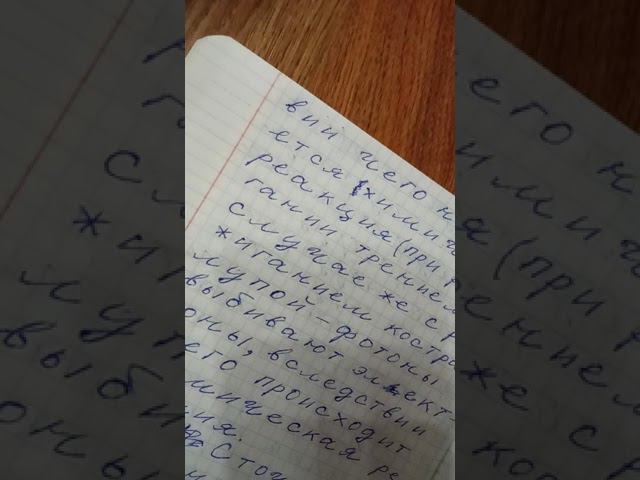 вии чего н
ется химич
реакция (при р
гании трением
случае же с р
жиганием костра
лупой - фотоны
выбивают элект-
оны, вследствии
его происходит
мическая ре
ия.
Сточ